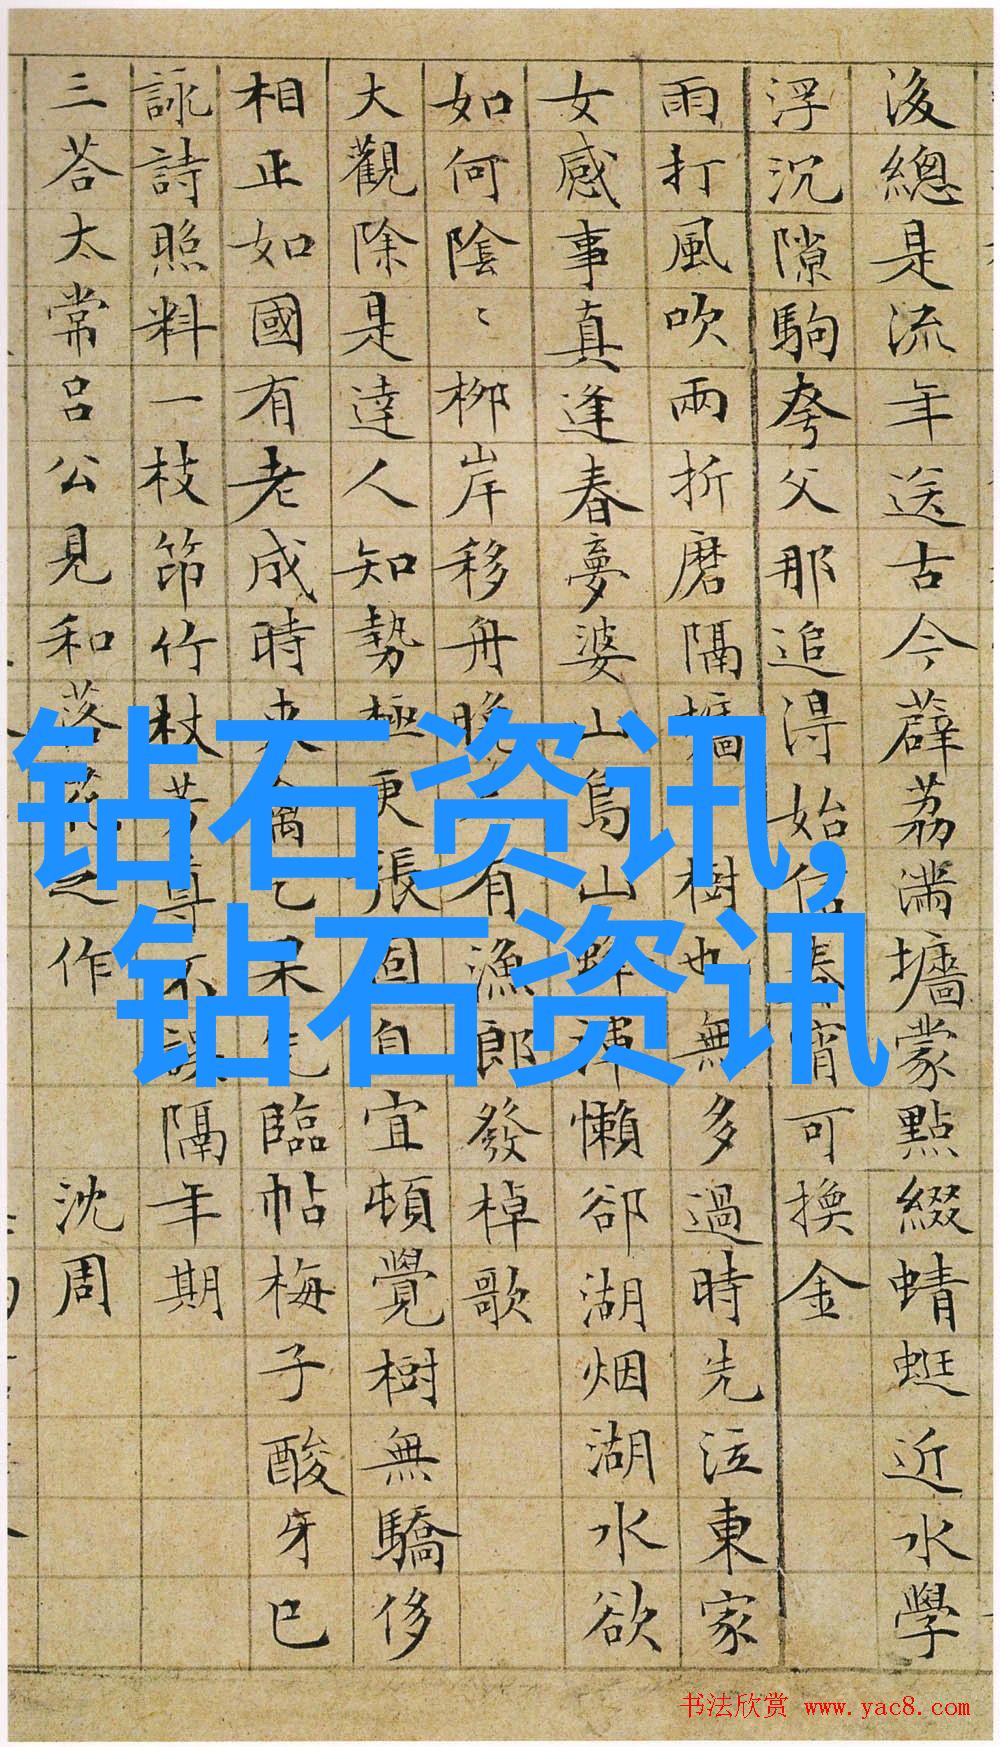 後總是流年送古今薜荔滿墻蒙點綴蜻蜓近水學
浮沉隙駒夸父那追得始信春宵可換金
雨打風吹兩折磨隔墻樹也無多過時先泣東家
女感事真逢春夢婆山鳥山懶卻湖烟湖水欲
如何陰〻柳岸移舟晚有漁郎發棹歌
大觀除是達人知勢極更張固自宜頓覺樹無驕侈
相正如國有老成時臨帖梅子酸牙已
詠詩照料一枝笻竹杖芳尊不誤隔年期
三荅太常吕公見和落花之作 沈周
钻石资讯,
钻石资讯
书法欣赏 www.yac8.com